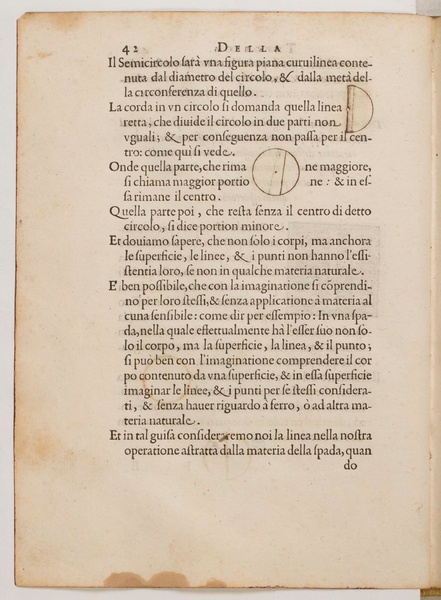 42 DELLA
Il Semicircolo sarà vna figura piana curuilinea conte-
nuta dal diametro del circolo, & dalla metà del-
la circonferenza di quello.
La corda in vn circolo si domanda quella linea
retta, che diuide il circolo in due parti non
vguali; & per conseguenza non passa per il cen-
tro: come qui si vede.
Onde quella parte, che rima ne maggiore,
si chiama maggior portio ne: & in es-
sa rimane il centro.
Quella parte poi, che resta senza il centro di detto
circolo, si dice portion minore.
Et douiamo sapere, che non solo i corpi, ma anchora
le superficie, le linee, & i punti non hanno l'essi-
stentia loro, se non in qualche materia naturale.
E' ben possibile, che con la imaginatione si cōprendi-
no per loro stessi, & senza applicatione à materia al
cuna sensibile: come dir per essempio: In vna spa-
da, nella quale effettualmente hà l'esser suo non so-
lo il corpo, ma la superficie, la linea, & il punto;
si può ben con l'imaginatione comprendere il cor
po contenuto da vna superficie, & in essa superficie
imaginar le linee, & i punti per se stessi considera-
ti, & senza hauer riguardo à ferro, ò ad altra ma-
teria naturale.
Et in tal guisa consideraremo noi la linea nella nostra
operatione astratta dalla materia della spada, quan
do